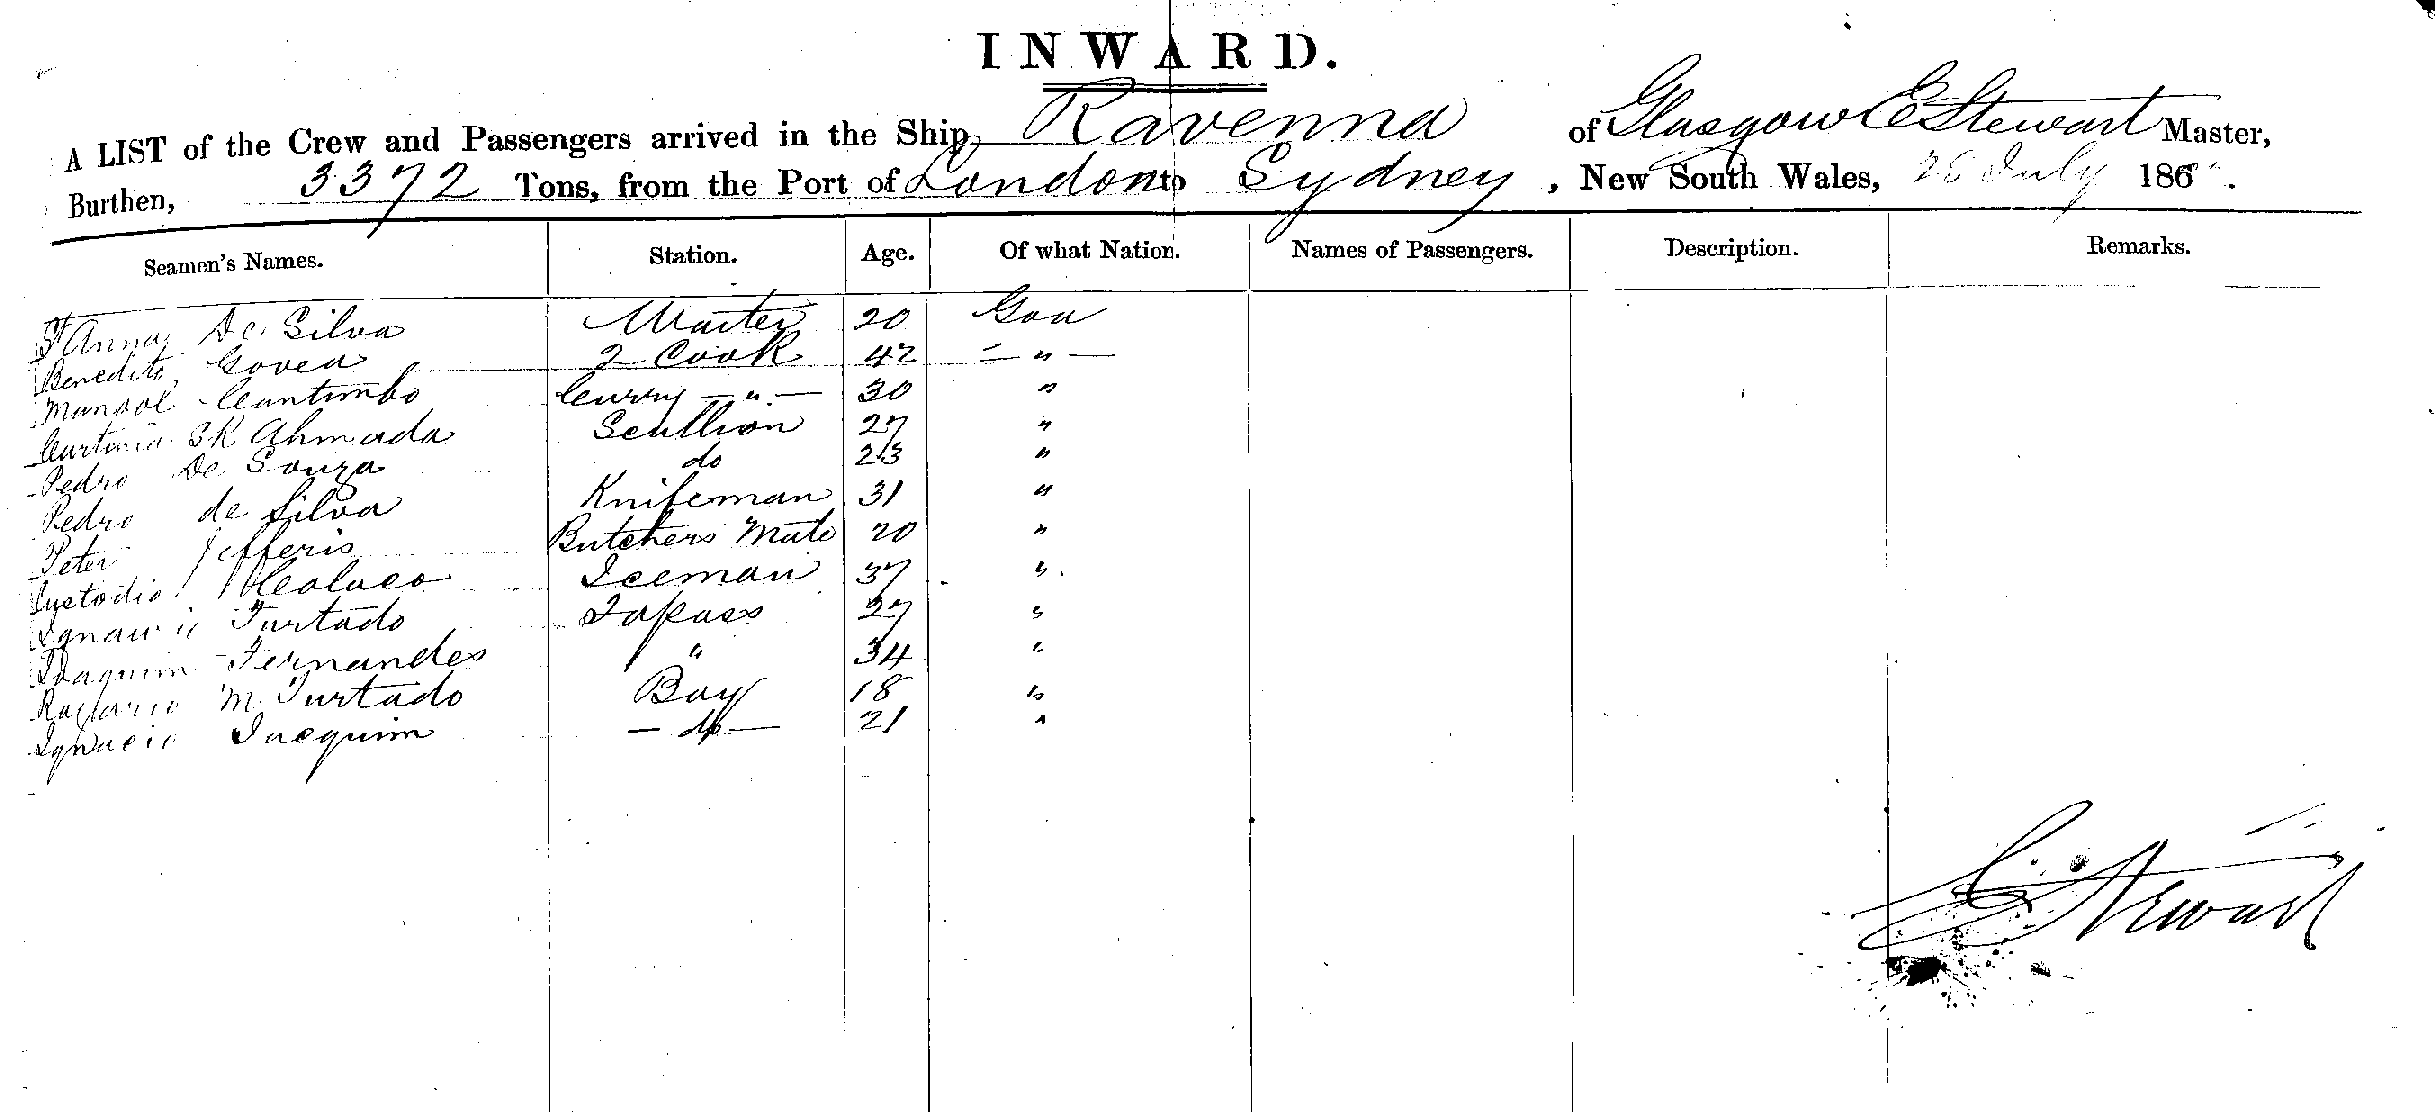 INWARD.
A LIST of the Crew and Passengers arrived in the Ship, Ravenna of Glasgow C Stewart Master,
Burthen, 3372 Tons, from the Port of London to Sydney, New South Wales, 26 July 186
Seamen's Names. Station. Age. Of what Nation. Names of Passengers. Description. Remarks.
De Silva Waiter 20 Goa
Benedito Govea 2 Cook 42 — " —
Manoel Curry — " — 30 "
SK Ahmada Scullion 27 "
Pedro De Souza do 23 "
Pedro de Silva Knifeman 31 "
Peter Jefferis Butchers Mate 20 "
Custodio Iceman 37 "
Furtado Topass 27 "
Joaquim Fernandes " 34 "
M. Furtado Boy 18 "
Ignacio Jacquim — do — 21 "
C Stewart